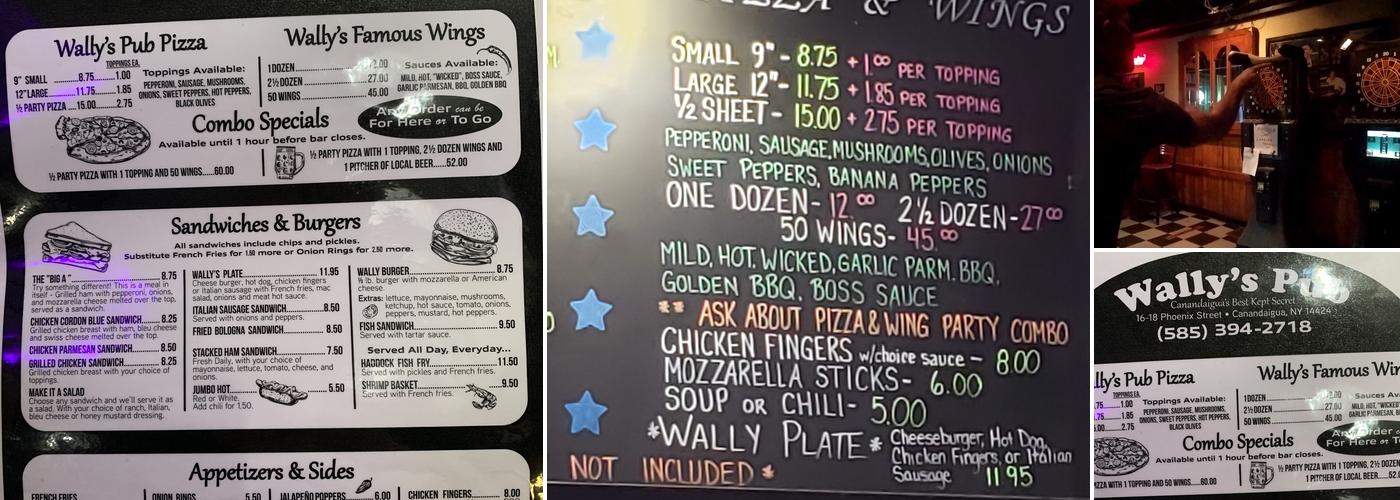 Wally's Pub Pizza
TOPPINGS EA.
9" SMALL ........8.75........1.00
12"LARGE........11.75........1.85
½ PARTY PIZZA ....15.00........2.75
Toppings Available:
PEPPERONI, SAUSAGE, MUSHROOMS,
ONIONS, SWEET PEPPERS, HOT PEPPERS,
BLACK OLIVES
Wally's Famous Wings
1 DOZEN 12.00
2½ DOZEN 27.00
50 WINGS 45.00
Sauces Available:
MILD, HOT, "WICKED", BOSS SAUCE,
GARLIC PARMESAN, BBQ, GOLDEN BBQ
Any Order can be
For Here or To Go
Combo Specials
Available until 1 hour before bar closes.
½ PARTY PIZZA WITH 1 TOPPING AND 50 WINGS......60.00
½ PARTY PIZZA WITH 1 TOPPING, 2½ DOZEN WINGS AND
1 PITCHER OF LOCAL BEER......52.00
Sandwiches & Burgers
All sandwiches include chips and pickles.
Substitute French Fries for 1.50 more or Onion Rings for 2.50 more.
THE "BIG A" 8.75
Try something different! This is a meal in
itself - Grilled ham with pepperoni, onions,
and mozzarella cheese melted over the top,
served as a sandwich.
CHICKEN CORDON BLUE SANDWICH 8.25
Grilled chicken breast with ham, bleu cheese
and swiss cheese melted over the top.
CHICKEN PARMESAN SANDWICH 8.50
GRILLED CHICKEN SANDWICH 8.25
Grilled chicken breast with your choice of
toppings.
MAKE IT A SALAD
Choose any sandwich and we'll serve it as
a salad. With your choice of ranch, Italian,
bleu cheese or honey mustard dressing.
WALLY'S PLATE 11.95
Cheese burger, hot dog, chicken fingers
or Italian sausage with French fries, mac
salad, onions and meat hot sauce.
ITALIAN SAUSAGE SANDWICH 8.50
Served with onions and peppers.
FRIED BOLOGNA SANDWICH 8.50
STACKED HAM SANDWICH 7.50
Fresh Daily, with your choice of
mayonnaise, lettuce, tomato, cheese, and
onions.
JUMBO HOT 5.50
Red or White.
Add chili for 1.50.
WALLY BURGER 8.75
⅓ lb. burger with mozzarella or American
cheese.
Extras: lettuce, mayonnaise, mushrooms,
ketchup, hot sauce, tomato, onions,
peppers, mustard, hot peppers.
FISH SANDWICH 9.50
Served with tartar sauce.
Served All Day, Everyday...
HADDOCK FISH FRY 11.50
Served with pickles and French fries.
SHRIMP BASKET 9.50
Served with French fries.
Appetizers & Sides
FRENCH FRIES
ONION RINGS 5.50
JALAPEÑO POPPERS 6.00
CHICKEN FINGERS 8.00
& WINGS
SMALL 9" - 8.75 + 1.00 PER TOPPING
LARGE 12" - 11.75 + 1.85 PER TOPPING
½ SHEET - 15.00 + 2.75 PER TOPPING
PEPPERONI, SAUSAGE, MUSHROOMS, OLIVES, ONIONS
SWEET PEPPERS, BANANA PEPPERS
ONE DOZEN - 12.00 2½ DOZEN - 27.00
50 WINGS - 45.00
MILD, HOT, WICKED, GARLIC PARM. BBQ,
GOLDEN BBQ, BOSS SAUCE
** ASK ABOUT PIZZA & WING PARTY COMBO
CHICKEN FINGERS w/choice sauce - 8.00
MOZZARELLA STICKS - 6.00
SOUP OR CHILI - 5.00
*WALLY PLATE* Cheeseburger, Hot Dog,
Chicken Fingers, or Italian
Sausage 11 95
NOT INCLUDED *
Wally's Pub
Canandaigua's Best Kept Secret
16-18 Phoenix Street • Canandaigua, NY 14424
(585) 394-2718
lly's Pub Pizza
TOPPINGS EA.
.75 1.00
1.75 1.85
5.00 2.75
Toppings Available:
PEPPERONI, SAUSAGE, MUSHROOMS,
ONIONS, SWEET PEPPERS, HOT PEPPERS,
BLACK OLIVES
Wally's Famous Win
1 DOZEN
2½ DOZEN 27.00
50 WINGS 45.00
Sauces Av
MILD, HOT, "WICKED"
GARLIC PARMESAN, B
Any Order c
For Here or T
Combo Specials
Available until 1 hour before bar closes.
½ PARTY PIZZA WITH 1 TOPPING, 2½ DOZEN
1 PITCHER OF LOCAL BEER......52.0
PING AND 50 WINGS......60.00